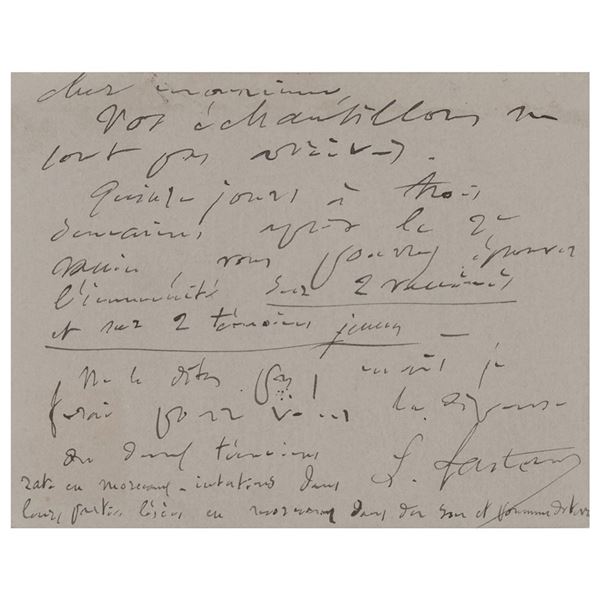 cher monsieur,
Vos échantillons ne
sont pas arrivés.
Quinze jours à trois
semaines après le 2e
vaccin, vous pouvez éprouver
l'immunité sur 2 vaccinés
et sur 2 témoins jeunes —
Ne le dites pas! mais je
ferai pour vous la dépense
des deux témoins
L. Pasteur
en morceaux dans
leurs parties en morceaux dans du son et